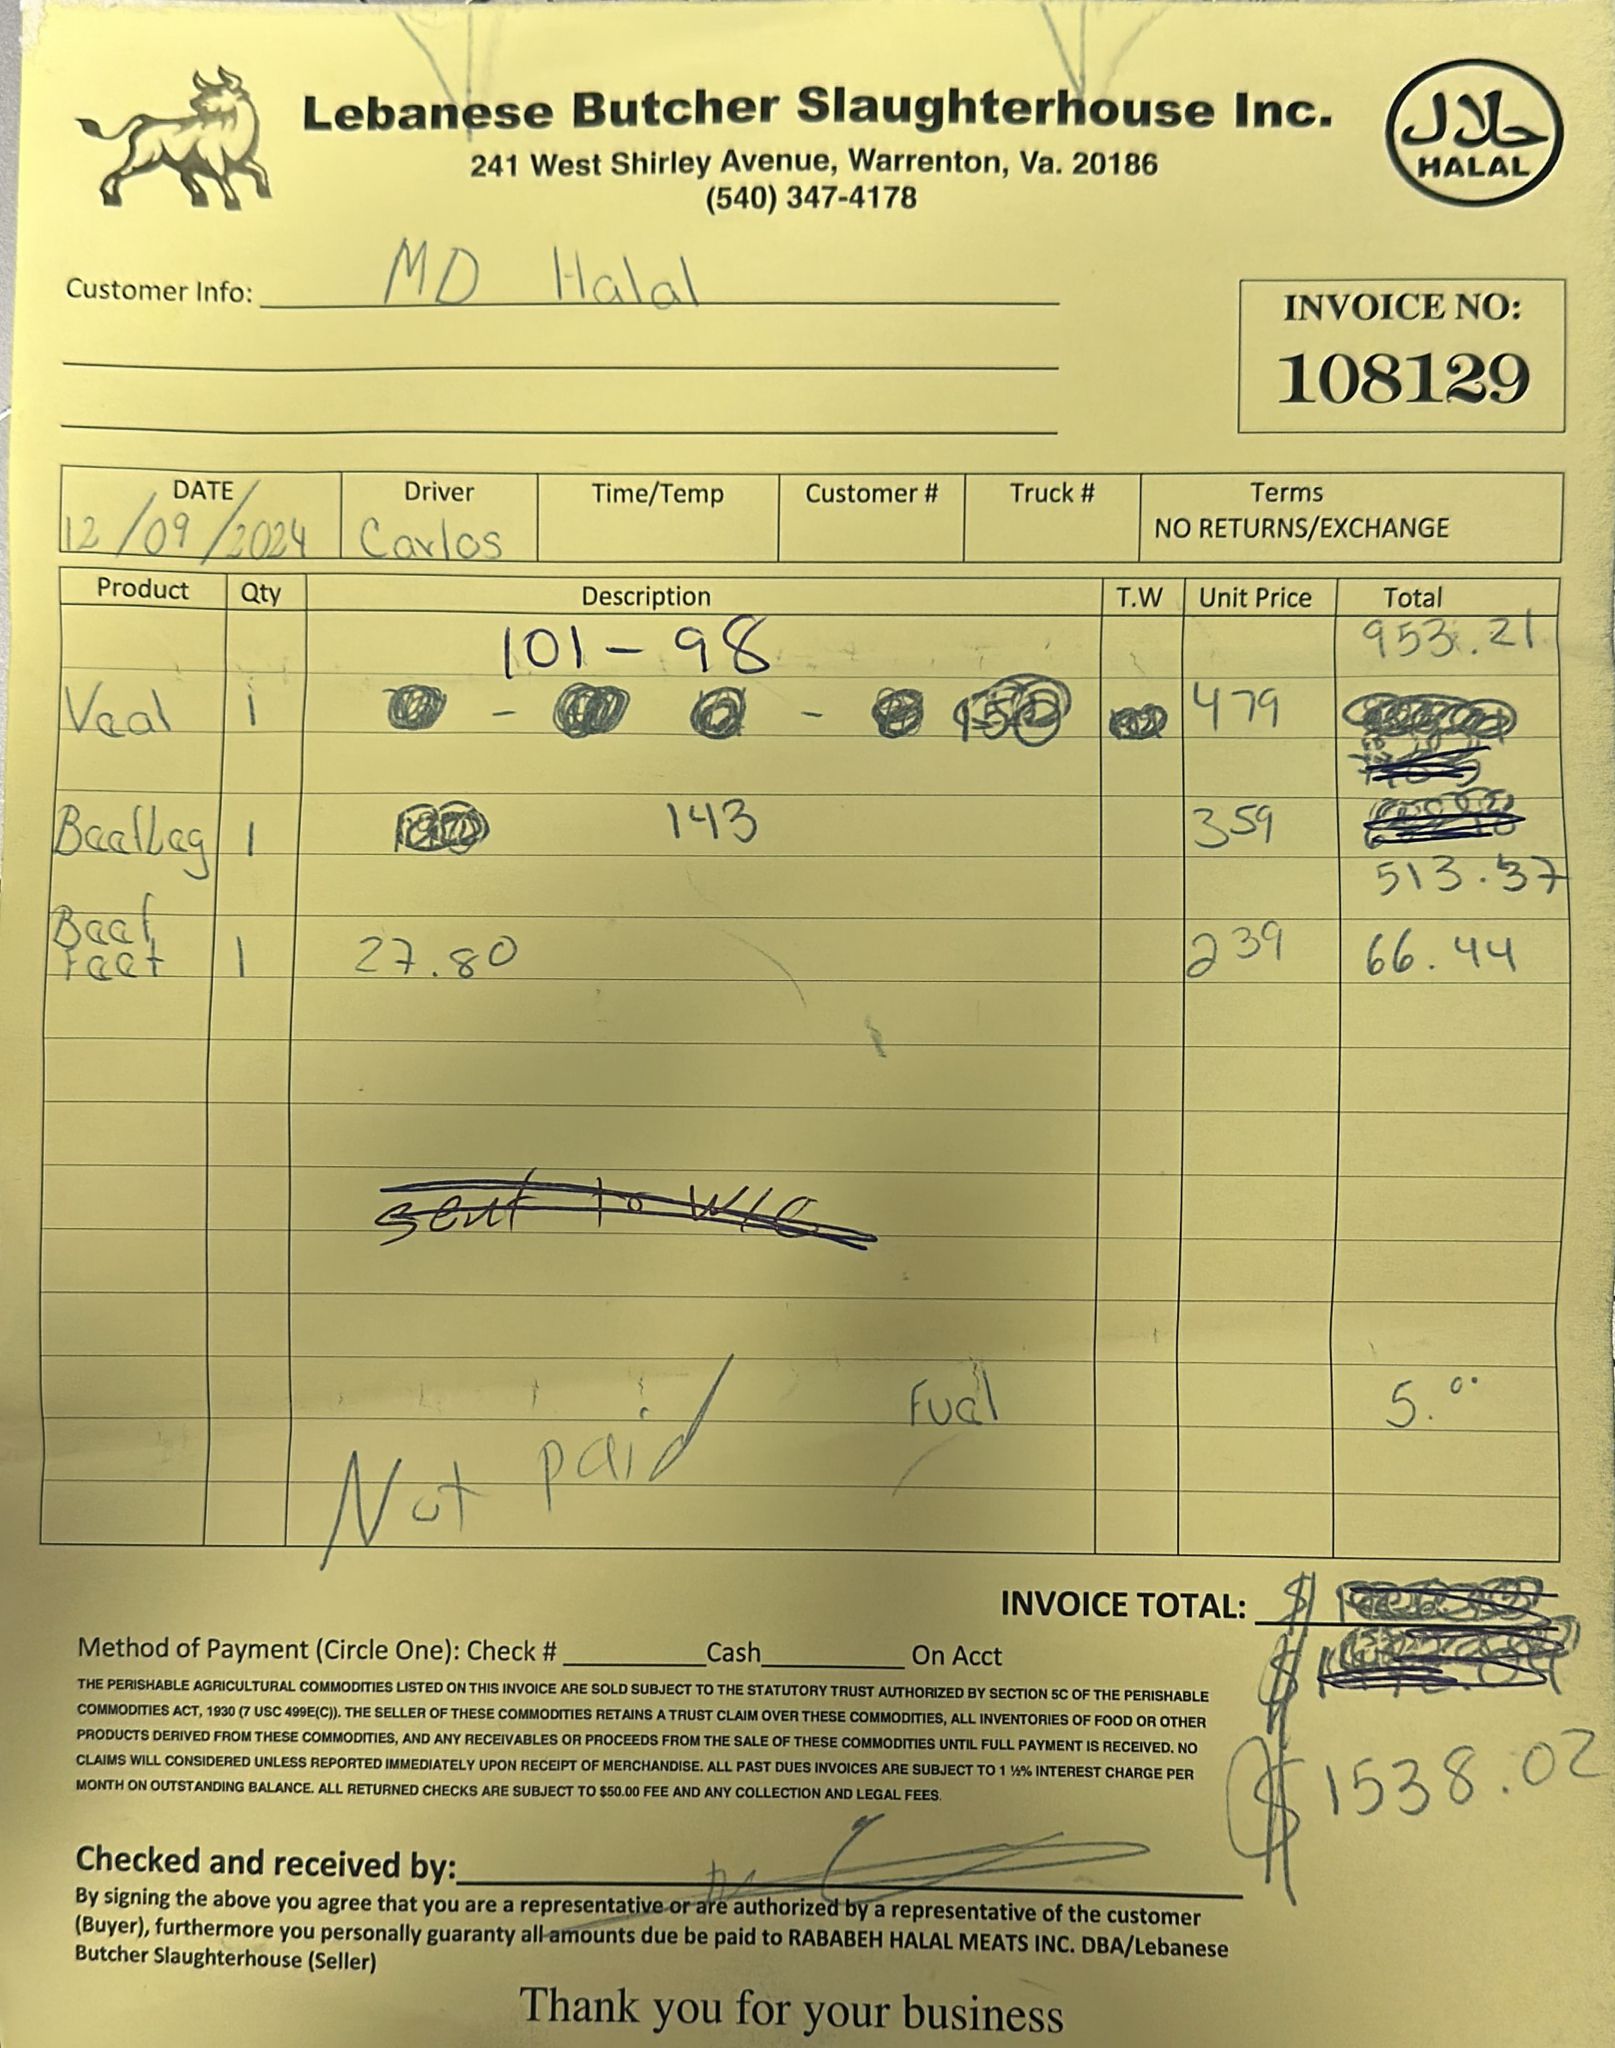 Lebanese Butcher Slaughterhouse Inc.
241 West Shirley Avenue, Warrenton, Va. 20186
(540) 347-4178
حلال
HALAL
Customer Info: MD Halal
INVOICE NO:
108129
DATE Driver Time/Temp Customer # Truck # Terms
12/09/2024 Carlos NO RETURNS/EXCHANGE
Product Qty Description T.W Unit Price Total
101-98 953.21
Vaal 1 - - 479
BaafLag 1 143 359
513.37
Baaf
Faat 1 27.80 239 66.44
sent to
Fual 5.00
Not paid
INVOICE TOTAL: $
Method of Payment (Circle One): Check # Cash On Acct
$
THE PERISHABLE AGRICULTURAL COMMODITIES LISTED ON THIS INVOICE ARE SOLD SUBJECT TO THE STATUTORY TRUST AUTHORIZED BY SECTION 5C OF THE PERISHABLE
COMMODITIES ACT, 1930 (7 USC 499E(C)). THE SELLER OF THESE COMMODITIES RETAINS A TRUST CLAIM OVER THESE COMMODITIES, ALL INVENTORIES OF FOOD OR OTHER
PRODUCTS DERIVED FROM THESE COMMODITIES, AND ANY RECEIVABLES OR PROCEEDS FROM THE SALE OF THESE COMMODITIES UNTIL FULL PAYMENT IS RECEIVED. NO
CLAIMS WILL CONSIDERED UNLESS REPORTED IMMEDIATELY UPON RECEIPT OF MERCHANDISE. ALL PAST DUES INVOICES ARE SUBJECT TO 1 ½% INTEREST CHARGE PER
MONTH ON OUTSTANDING BALANCE. ALL RETURNED CHECKS ARE SUBJECT TO $50.00 FEE AND ANY COLLECTION AND LEGAL FEES.
$1538.02
Checked and received by:
By signing the above you agree that you are a representative or are authorized by a representative of the customer
(Buyer), furthermore you personally guaranty all amounts due be paid to RABABEH HALAL MEATS INC. DBA/Lebanese
Butcher Slaughterhouse (Seller)
Thank you for your business